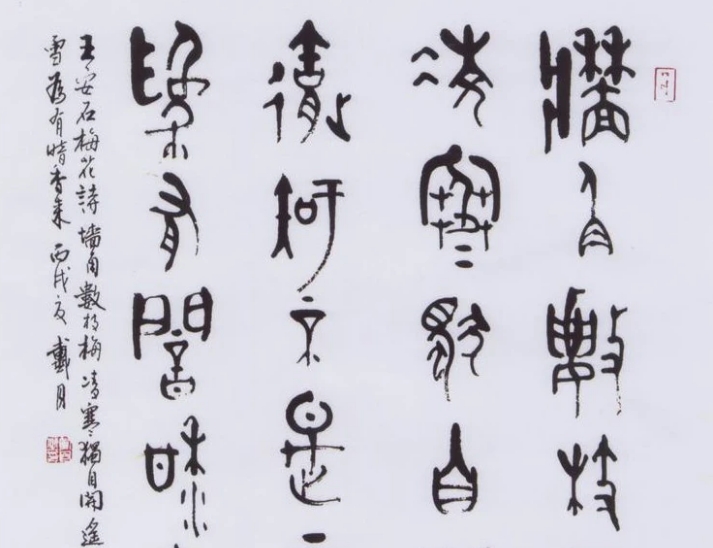 牆角數枝
凌寒獨自
遙知不是
為有闇香
王安石梅花詩 墻角數枝梅凌寒獨自開遙
雪為有暗香來 丙戌夏 戴月